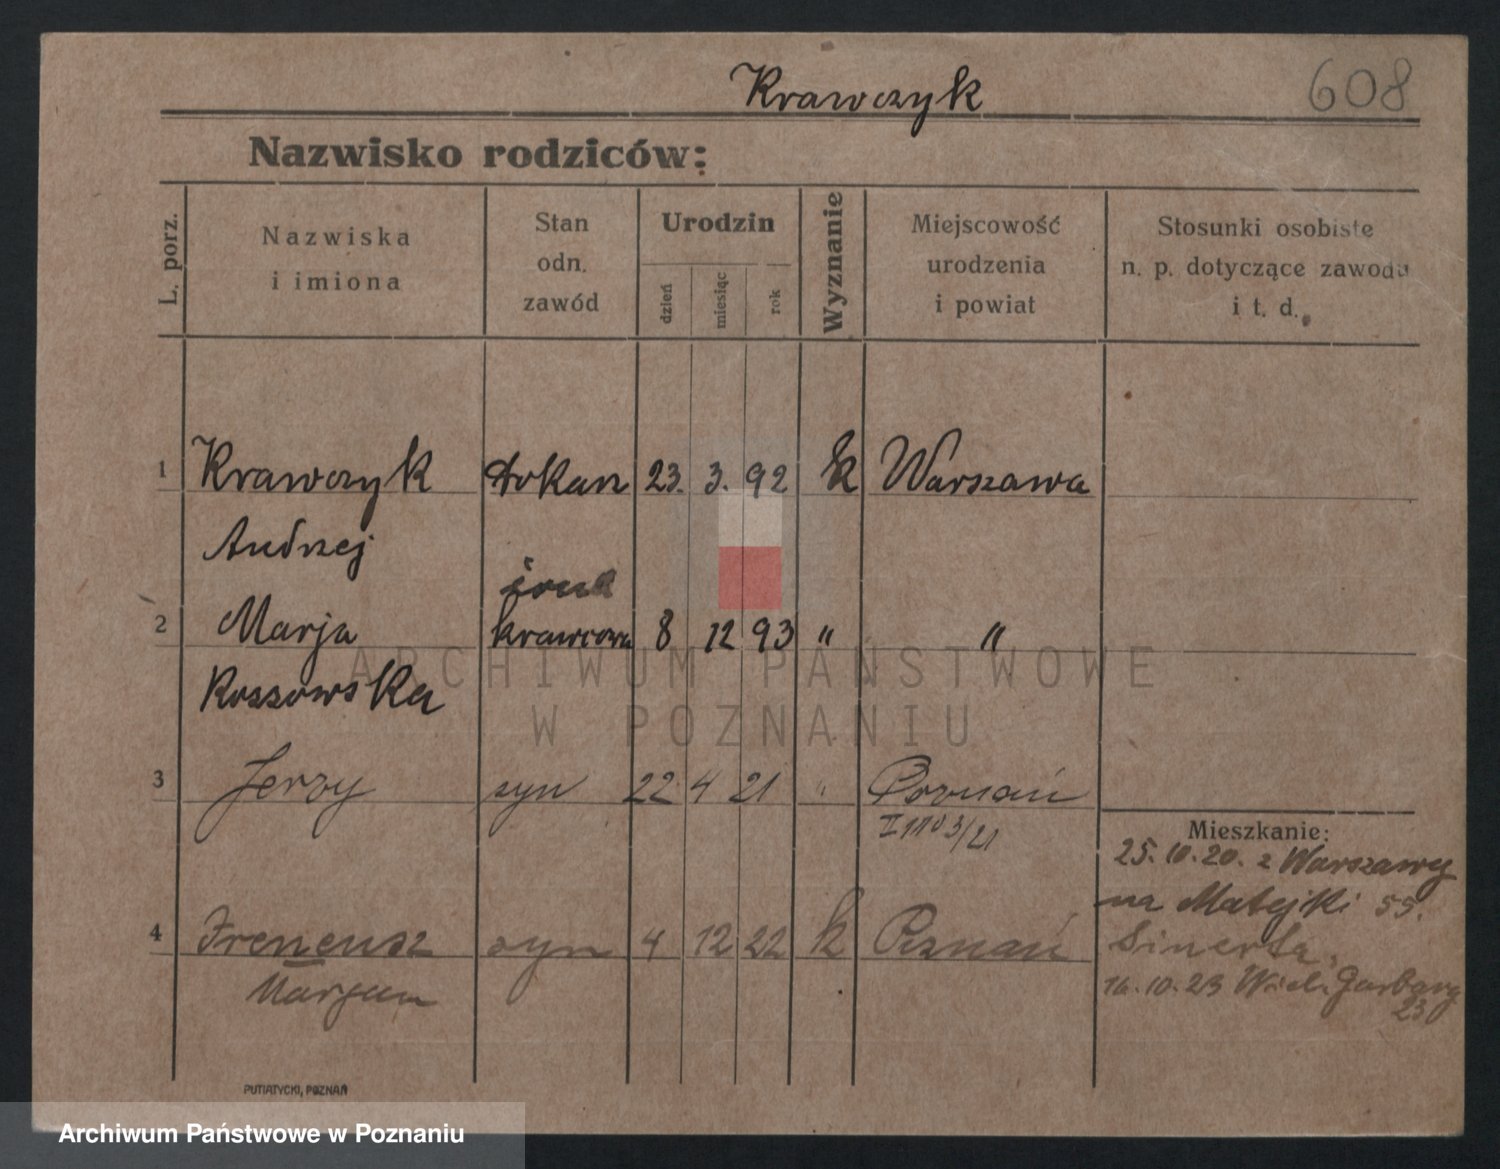 Krawczyk
608
Nazwisko rodziców:
L. porz.
Nazwiska
i imiona
Stan
odn.
zawód
Urodzin
dzień
miesiąc
rok
Wyznanie
Miejscowość
urodzenia
i powiat
Stosunki osobiste
n. p. dotyczące zawodu
i t. d.
1 Krawczyk 23. 3. 92 k Warszawa
Andrzej
żona
2 Marja krawcowa 8 12 93 " "
Kossowska
ARCHIWUM PAŃSTWOWE
W POZNANIU
3 Jerzy syn 22 4 21 " Poznań
Mieszkanie:
25.10.20. z Warszawy
na Matejki 55.
4 Ireneusz syn 4 12 22 k Poznań
Marjan
16.10.23 Wiel. Garbary
23
PUTIATYCKI, POZNAŃ
Archiwum Państwowe w Poznaniu